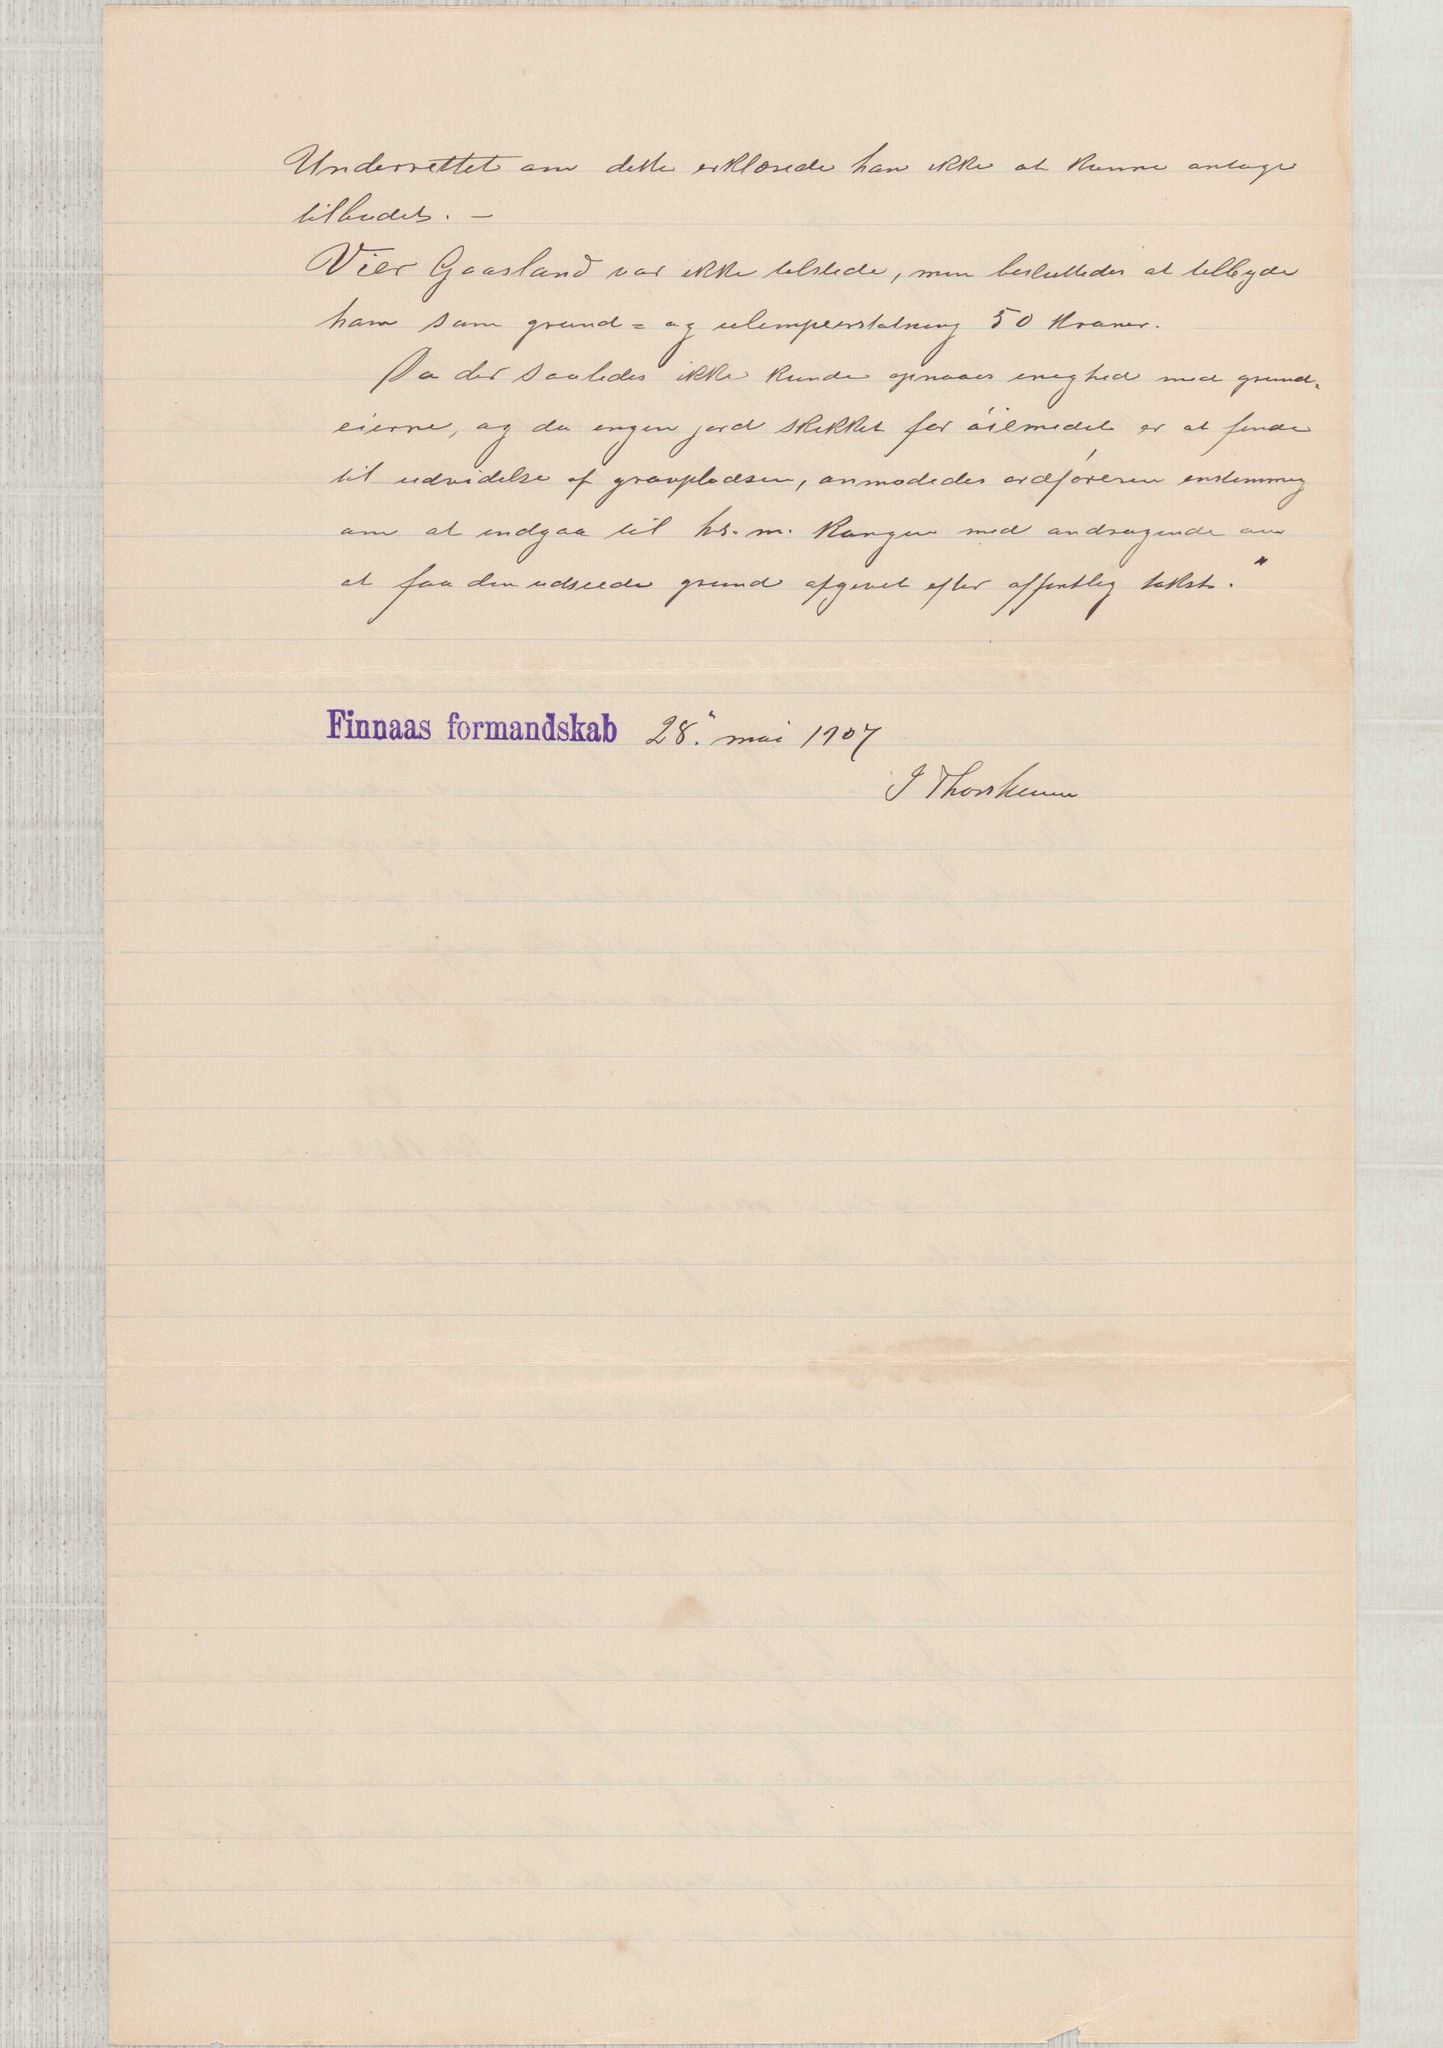 Underrettet om dette erklærede han ikke at kunne antage
tilbudet. —
Vier Gaasland var ikke tilstede, men besluttedes at tilbyde
ham som grund- og ulempeerstatning 50 kroner.
Da der saaledes ikke kunde opnaaes enighed med grund-
eierne, og da ingen jord skikket for øiemedet er at finde
til udvidelse af gravpladsen, anmodedes ordføreren enstemmig
om at indgaa til hs. m. Kongen med andragende om
at faa den udseede grund afgivet efter offentlig takst."
Finnaas formandskab 28. mai 1907